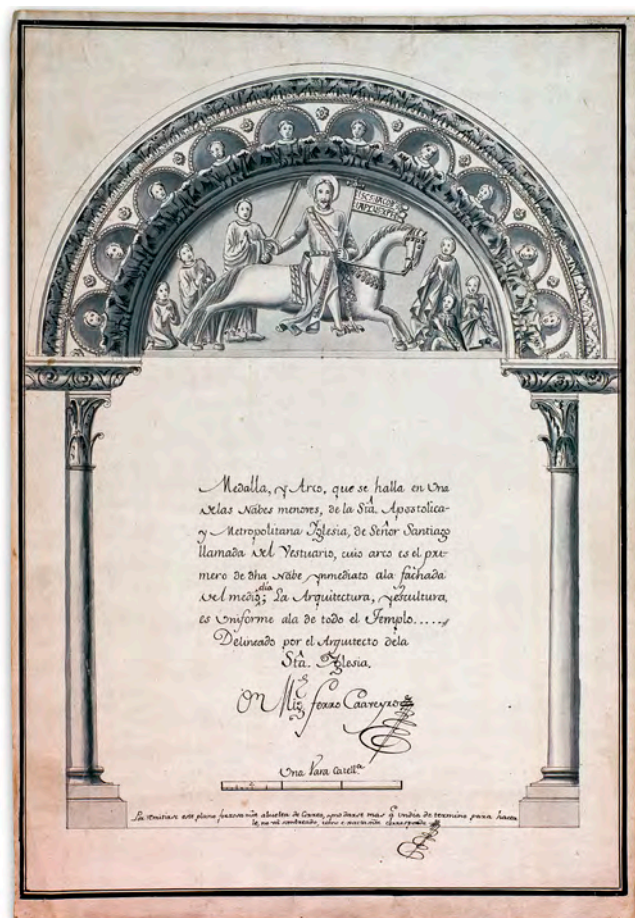 SCS IACOB
Medalla, y Arco, que se halla en Una
de las Nabes menores, de la Sta. Apostolica
y Metropolitana Yglesia, de Señor Santiago
llamada del Vestuario, cuio arco es el pri-
mero de dha Nabe ynmediato ala fachada
del medio dia; La Arquitectura, yescultura,
es Uniforme ala de todo el Templo.....
Delineado por el Arquitecto dela
Sta. Yglesia.
Dn Migl ferro Caaveyro
Una Vara Castella.
este plano abuelta de Correo, mas q. undia de termino para